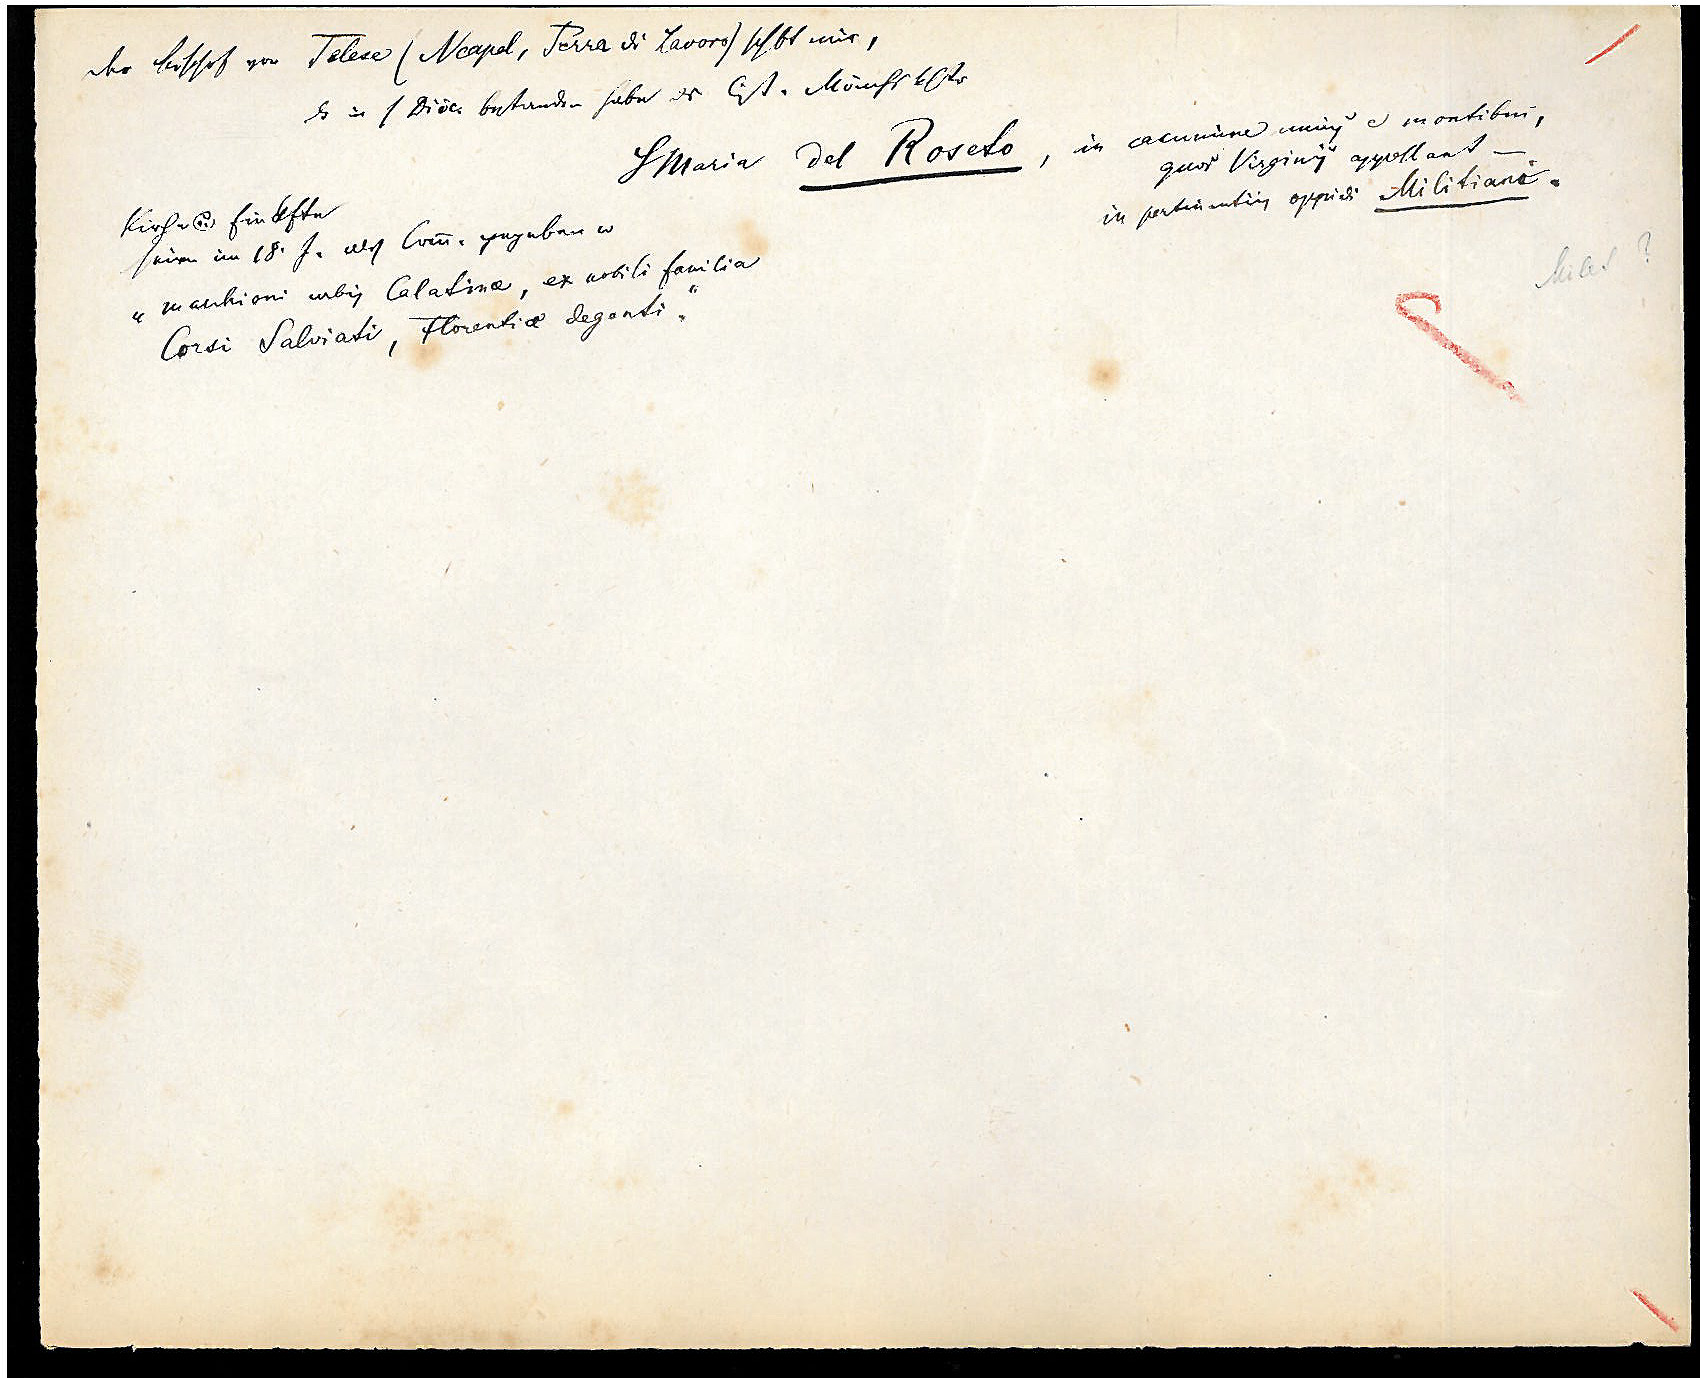 der Bischof von Telese (Neapel, Terra di Lavoro) schbt mir,
ds in s Diöc. bestanden habe ds Cist. Mönchskloster
S Maria del Roseto, in cacumine unius e montibus,
quos Virginis appellant —
in pertinentiis oppidi Militiano.
Kirche Einkfte
seien im 18. J. als Com̅. gegeben w
"marchioni urbis Calatinæ, ex nobili familia
Corsi Salviati, Florentiæ deganti."
?